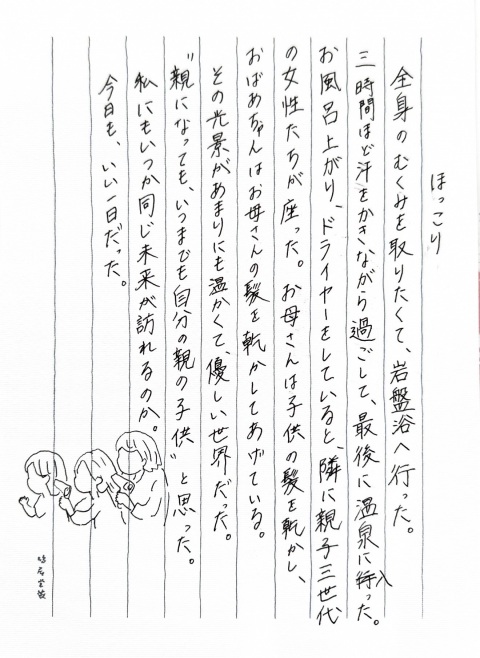 ほっこり
全身のむくみを取りたくて、岩盤浴へ行った。
三時間ほど汗をかきながら過ごして、最後に温泉に入った。
お風呂上がり、ドライヤーをしていると、隣に親子三世代
の女性たちが座った。お母さんは子供の髪を乾かし、
おばあちゃんはお母さんの髪を乾かしてあげている。
その光景があまりにも温かくて、優しい世界だった。
"親になっても、いつまでも自分の親の子供"と思った。
私にもいつか同じ未来が訪れるのか。
今日も、いい一日だった。